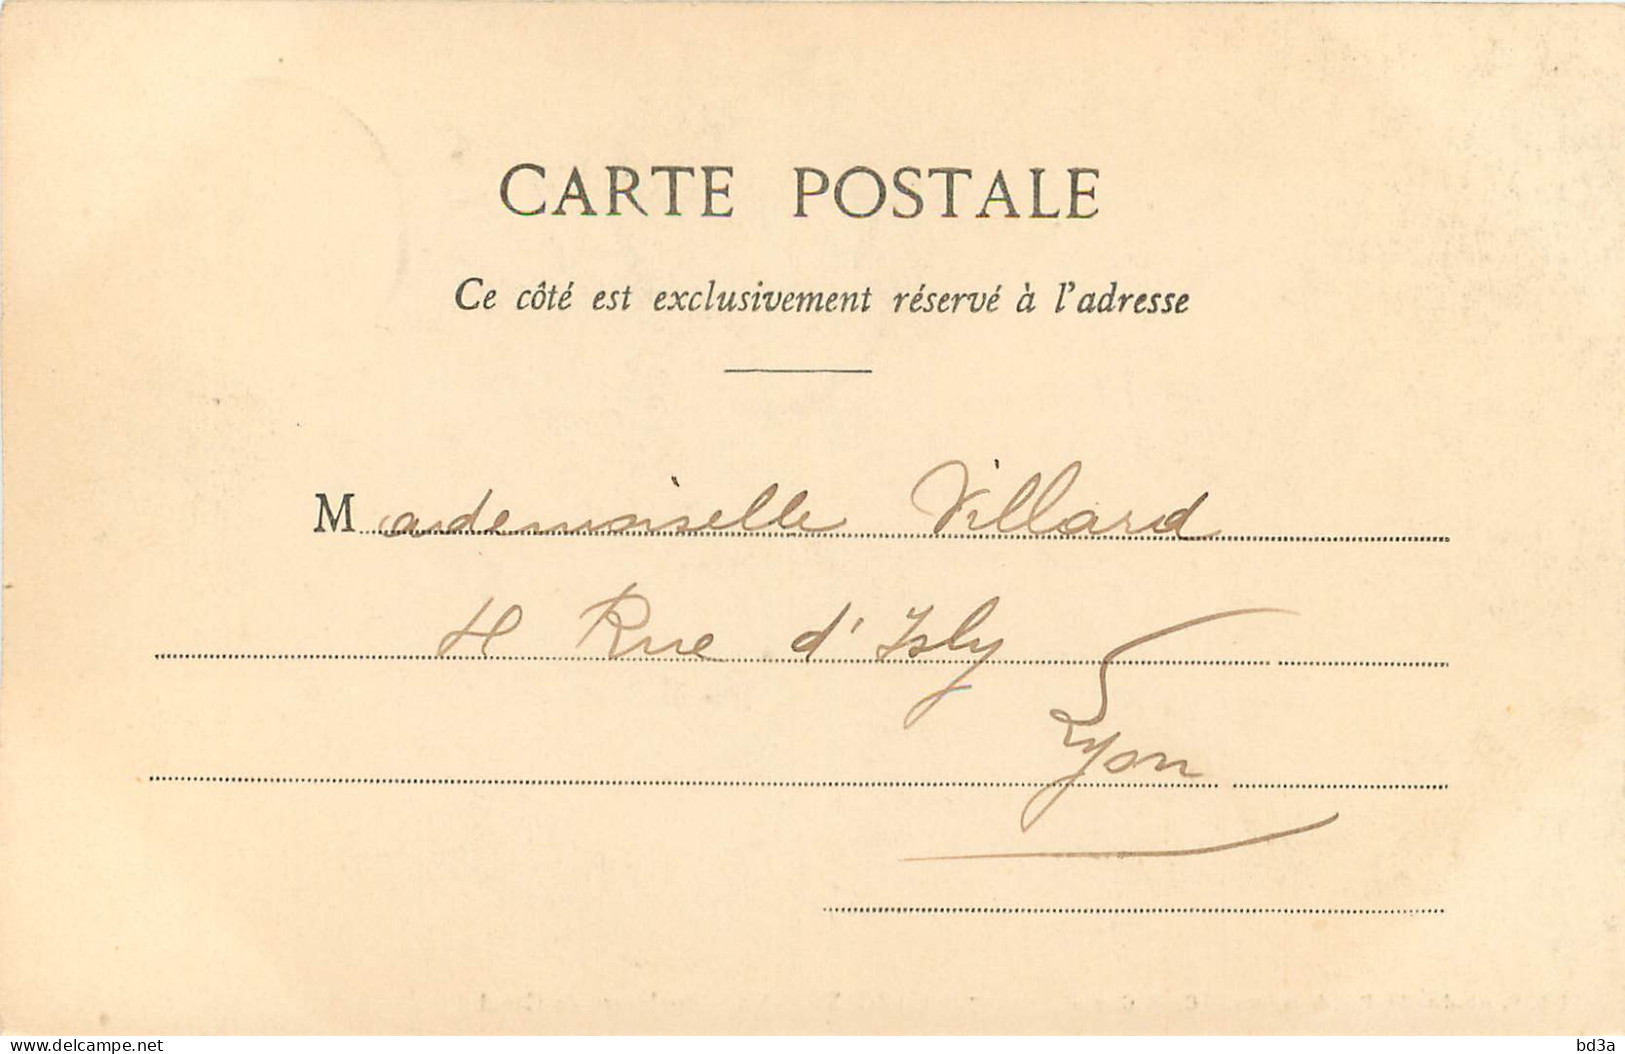 CARTE POSTALE
Ce côté est exclusivement réservé à l'adresse
Mademoiselle Villard
4 Rue d'Isly
Lyon
www.delcampe.net
bd3a